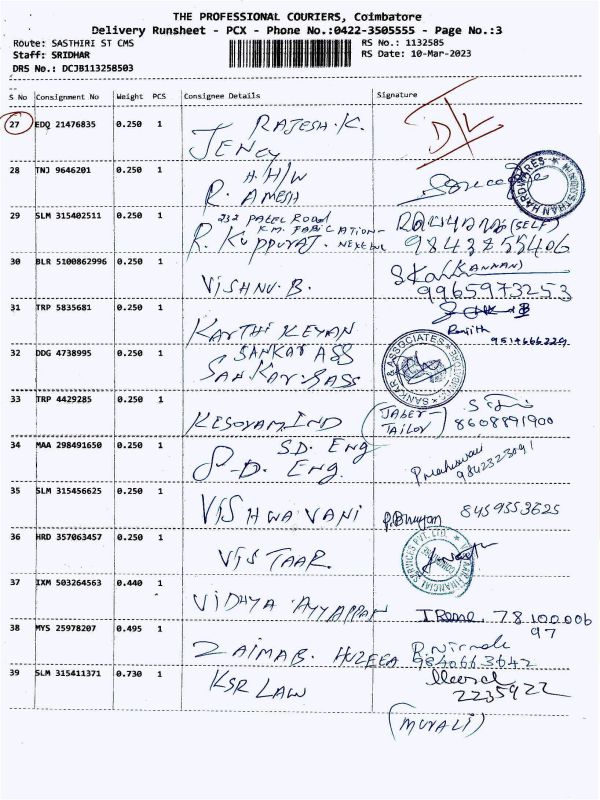 THE PROFESSIONAL COURIERS, Coimbatore
Delivery Runsheet - PCX - Phone No.:0422-3505555 - Page No.:3
Route: SASTHIRI ST CMS RS No.: 1132585
Staff: SRIDHAR RS Date: 10-Mar-2023
DRS No.: DCJB113258503
S No Consignment No Weight PCS Consignee Details Signature
27 EDQ 21476835 0.250 1 RAJESH.K. D/L
JENCY
28 TNJ 9646201 0.250 1 H.H/W
R. AMESH
HINDUSTHAN HARDWARES
29 SLM 315402511 0.250 1 232 PATEL ROAD (SELF)
K.M. FABICATION-
R. KUPPURAJ. 9843755406
30 BLR 5100862996 0.250 1 VISHNU.B. (KANNAN)
9965973253
31 TRP 5835681 0.250 1 KARTHIKEYAN Ranjith
32 DDG 4738995 0.250 1 SANKAR ASS
SANKAR ASS
SANKAR & ASSOCIATES
33 TRP 4429285 0.250 1 KESOYAM IND (JABER-
TAILOV) 8608891900
34 MAA 298491650 0.250 1 S.D. Eng
S-D. Eng. 9842323091
35 SLM 315456625 0.250 1 VISHWAVANI 8459553625
36 HRD 357063457 0.250 1 VISTAAR.
VISTAAR FINANCIAL SERVICES PVT. LTD.
37 IXM 503264563 0.440 1 VIDHYA AYYAPPAN 78100006
97
38 MYS 25978207 0.495 1 ZAIMAB. HUZEFA 9840663642
39 SLM 315411371 0.730 1 KSR LAW 2235922
(MURALI)